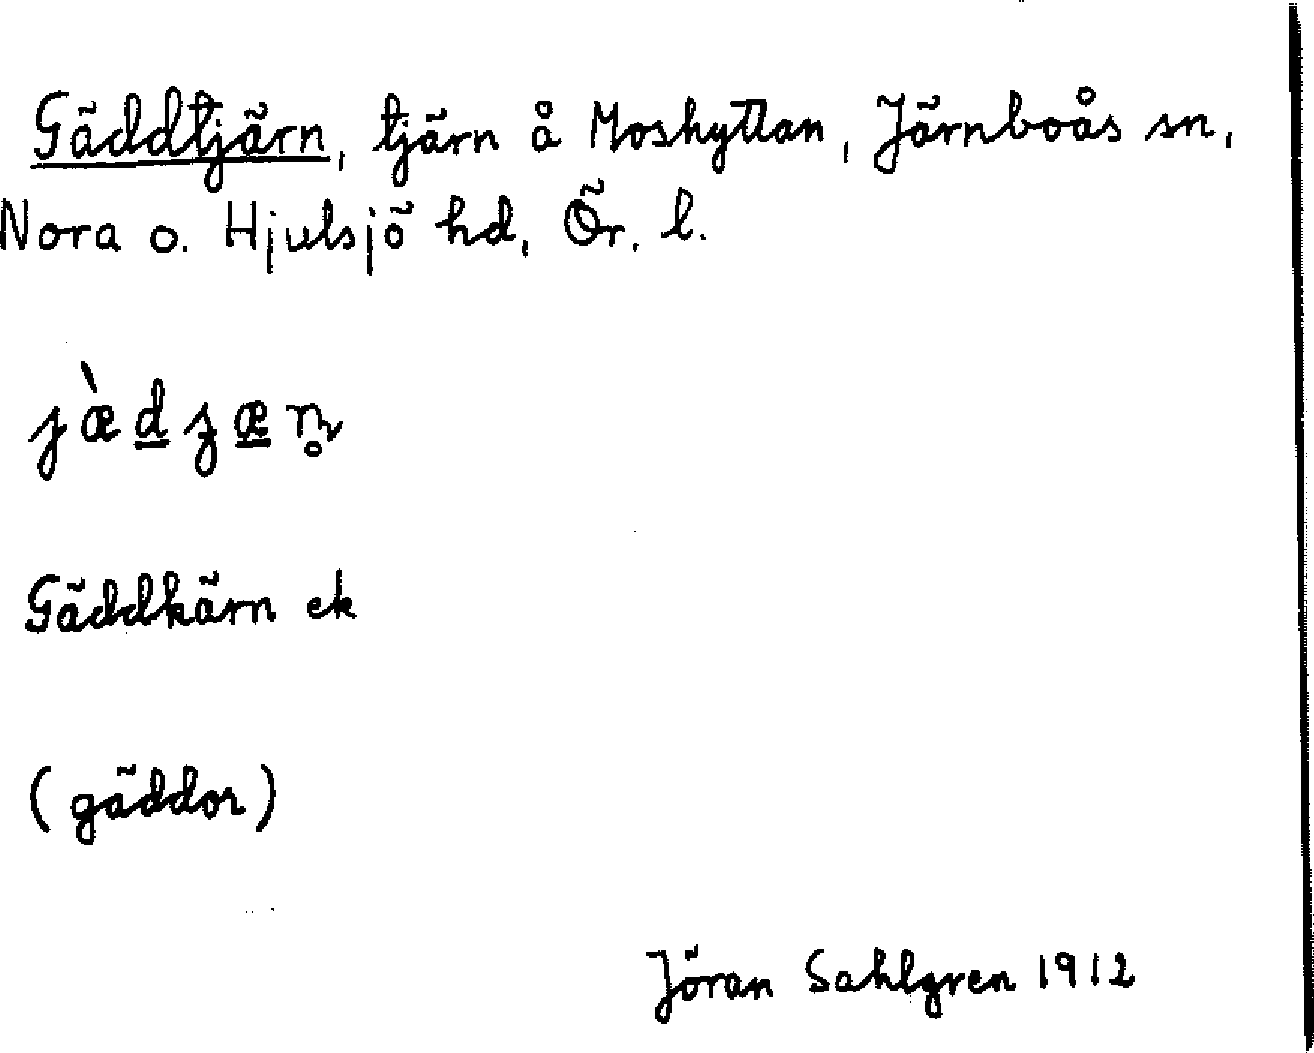 Gäddtjärn, tjärn å Moshyttan, Järnboås sn,
Nora o. Hjulsjö hd, Ör. l.
jæ̀d̲ȥæ̲n̥
Gäddkärn ek
(gäddor)
Jöran Sahlgren 1912